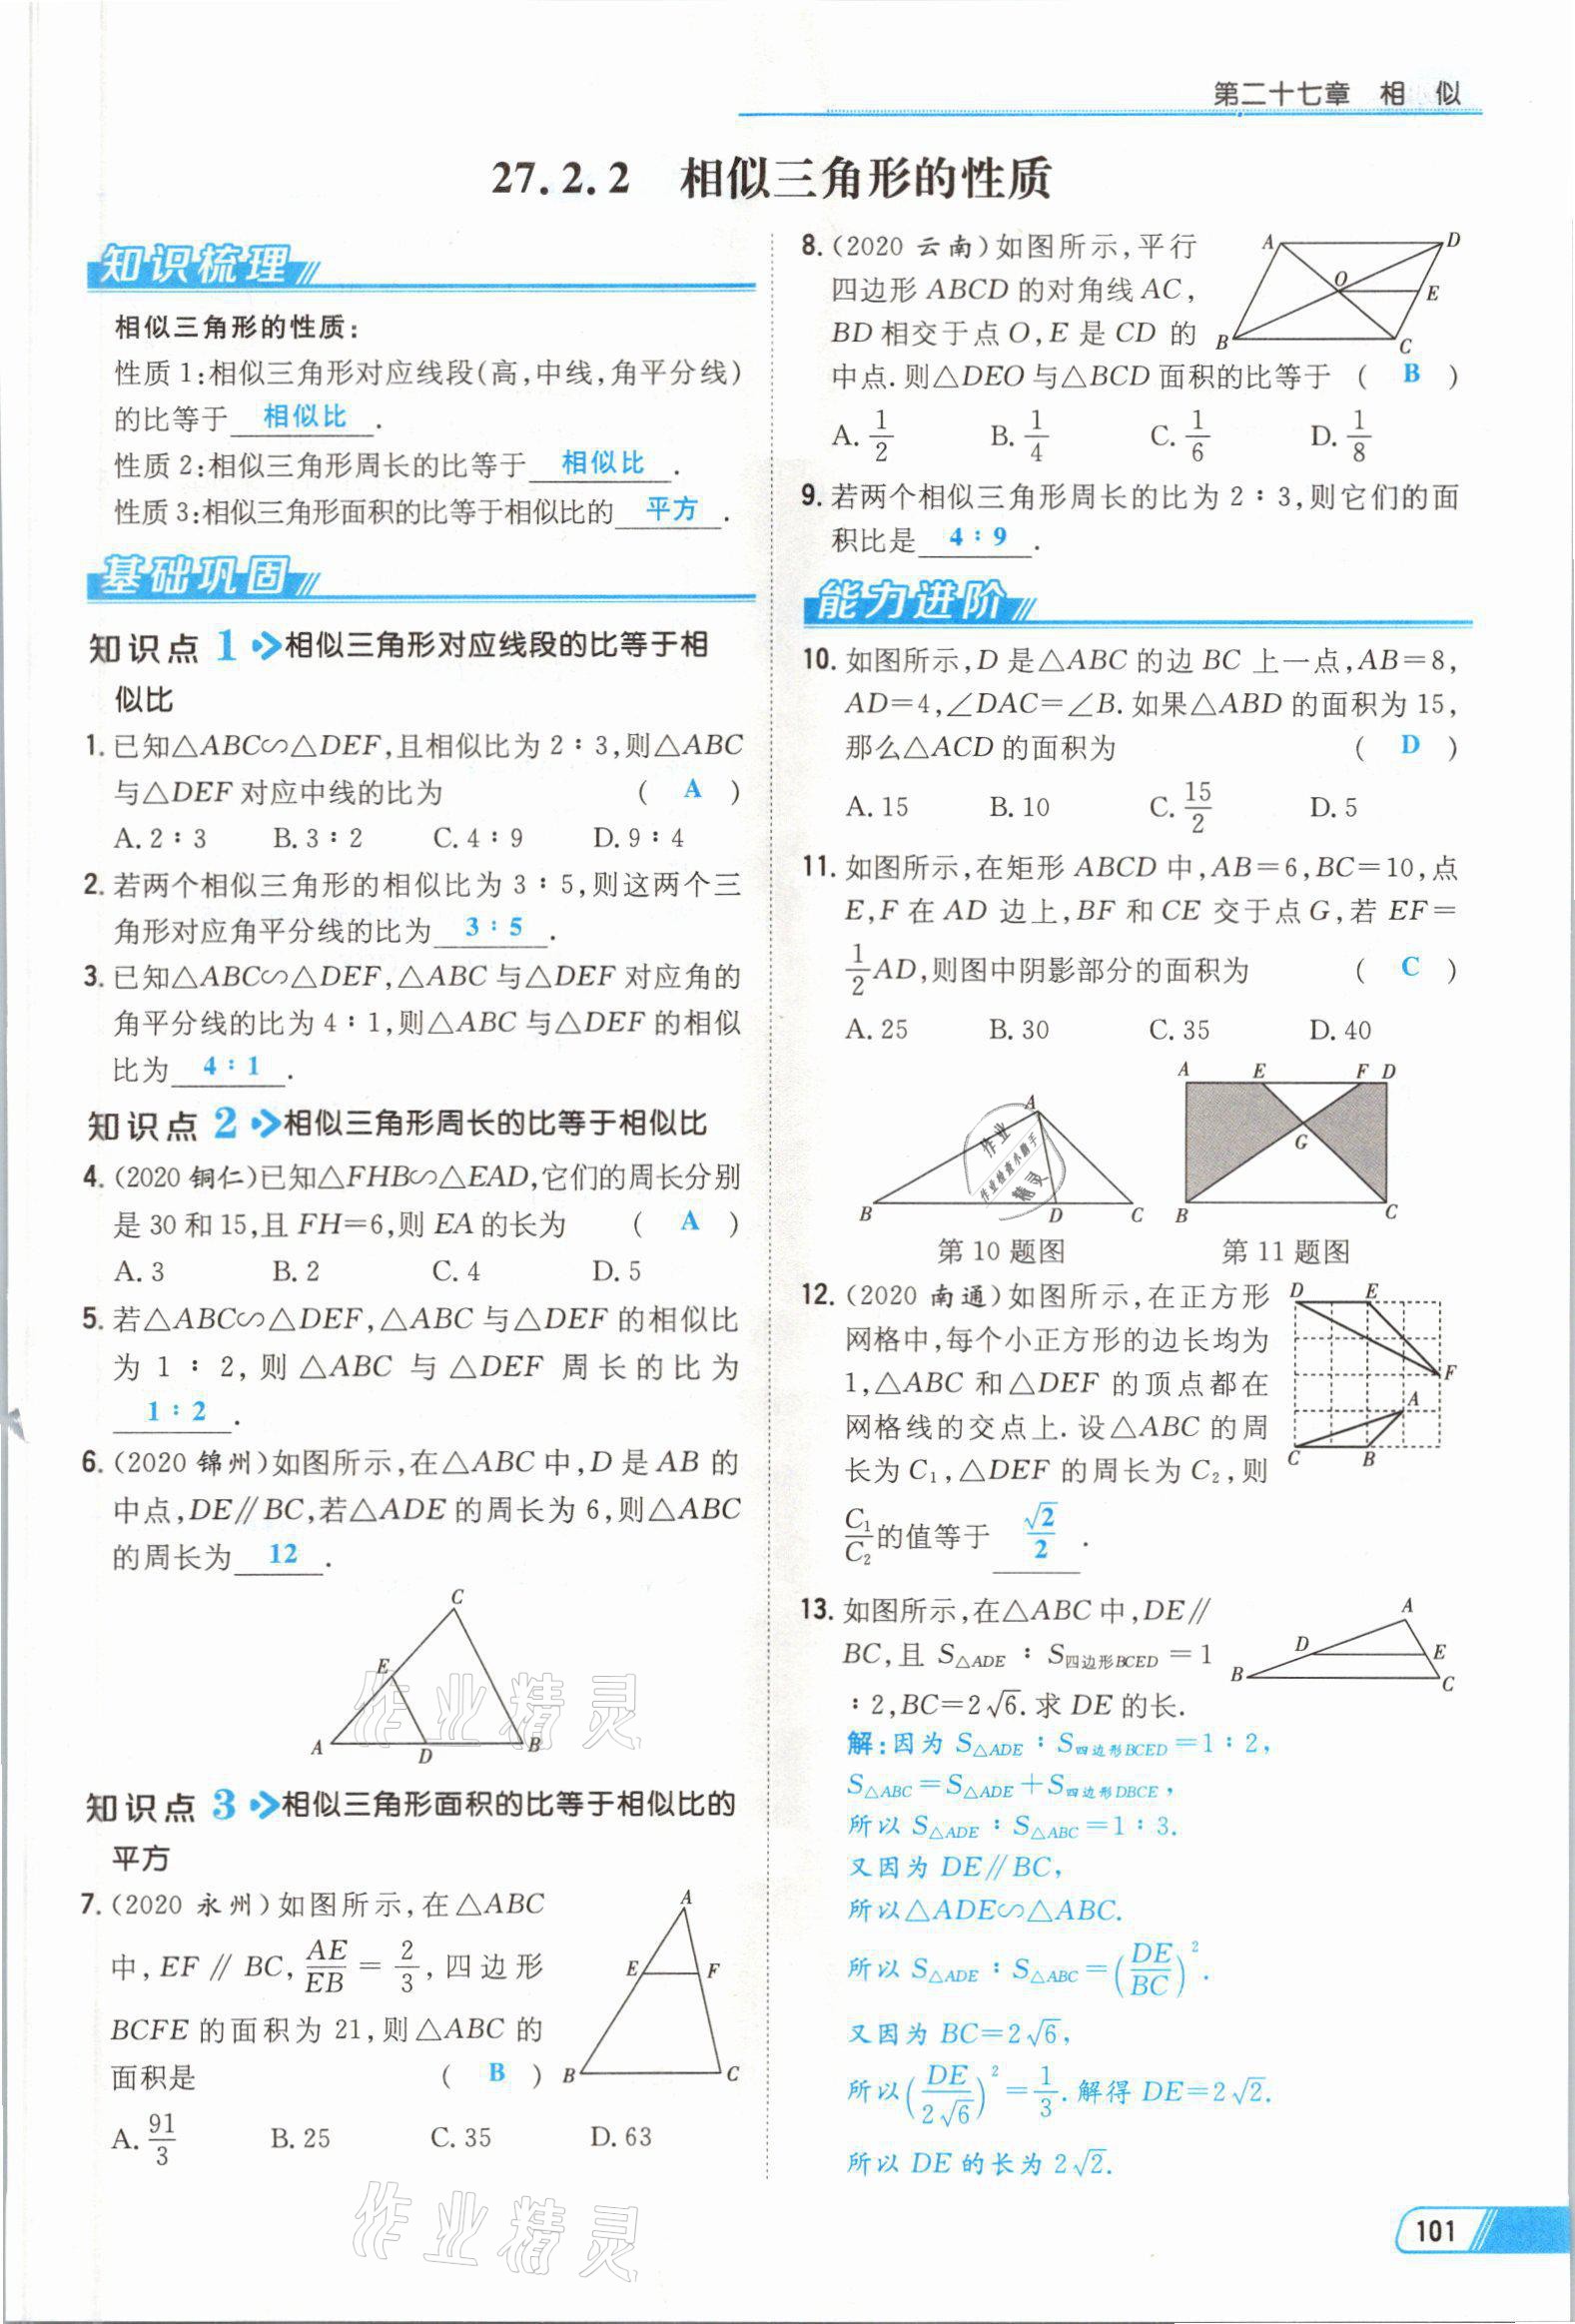 第二十七章 相 似
27.2.2 相似三角形的性质
知识梳理
相似三角形的性质:
性质1:相似三角形对应线段(高,中线,角平分线)
的比等于 相似比 .
性质2:相似三角形周长的比等于 相似比 .
性质3:相似三角形面积的比等于相似比的 平方 .
基础巩固
知识点 1 相似三角形对应线段的比等于相
似比
1. 已知△ABC∽△DEF,且相似比为2∶3,则△ABC
与△DEF对应中线的比为 ( A )
A. 2∶3 B. 3∶2 C. 4∶9 D. 9∶4
2. 若两个相似三角形的相似比为3∶5,则这两个三
角形对应角平分线的比为 3∶5 .
3. 已知△ABC∽△DEF,△ABC与△DEF对应角的
角平分线的比为4∶1,则△ABC与△DEF的相似
比为 4∶1 .
知识点 2 相似三角形周长的比等于相似比
4. (2020铜仁)已知△FHB∽△EAD,它们的周长分别
是30和15,且FH=6,则EA的长为 ( A )
A. 3 B. 2 C. 4 D. 5
5. 若△ABC∽△DEF,△ABC与△DEF的相似比
为1∶2,则△ABC与△DEF周长的比为
1∶2 .
6. (2020锦州)如图所示,在△ABC中,D是AB的
中点,DE∥BC,若△ADE的周长为6,则△ABC
的周长为 12 .
C
E
A D B
作业精灵
知识点 3 相似三角形面积的比等于相似比的
平方
7. (2020永州)如图所示,在△ABC
中,EF∥BC,AE/EB=2/3,四边形
BCFE的面积为21,则△ABC的
面积是 ( B )
A. 91/3 B. 25 C. 35 D. 63
A
E F
B C
作业精灵
8. (2020云南)如图所示,平行
四边形ABCD的对角线AC,
BD相交于点O,E是CD的
中点.则△DEO与△BCD面积的比等于 ( B )
A. 1/2 B. 1/4 C. 1/6 D. 1/8
A D
O E
B C
9. 若两个相似三角形周长的比为2∶3,则它们的面
积比是 4∶9 .
能力进阶
10. 如图所示,D是△ABC的边BC上一点,AB=8,
AD=4,∠DAC=∠B.如果△ABD的面积为15,
那么△ACD的面积为 ( D )
A. 15 B. 10 C. 15/2 D. 5
11. 如图所示,在矩形ABCD中,AB=6,BC=10,点
E,F在AD边上,BF和CE交于点G,若EF=
1/2AD,则图中阴影部分的面积为 ( C )
A. 25 B. 30 C. 35 D. 40
A
B D C
作业
作业检查小助手
精灵
A E F D
G
B C
第10题图 第11题图
12. (2020南通)如图所示,在正方形
网格中,每个小正方形的边长均为
1,△ABC和△DEF的顶点都在
网格线的交点上.设△ABC的周
长为C₁,△DEF的周长为C₂,则
C₁/C₂的值等于 √2/2 .
D E
F
A
C B
13. 如图所示,在△ABC中,DE∥
BC,且S△ADE∶S四边形BCED=1
∶2,BC=2√6.求DE的长.
A
D E
B C
解:因为S△ADE∶S四边形BCED=1∶2,
S△ABC=S△ADE+S四边形DBCE,
所以S△ADE∶S△ABC=1∶3.
又因为DE∥BC,
所以△ADE∽△ABC.
所以S△ADE∶S△ABC=(DE/BC)².
又因为BC=2√6,
所以(DE/2√6)²=1/3.解得DE=2√2.
所以DE的长为2√2.
101